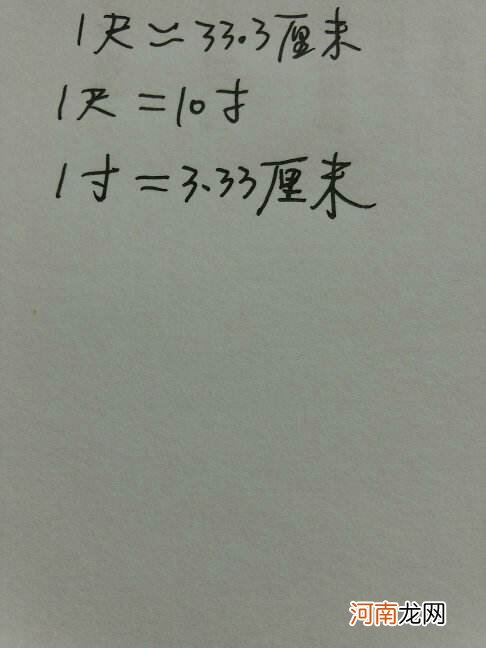 1尺≈33.3厘米
1尺=10寸
1寸=3.33厘米
河南龙网